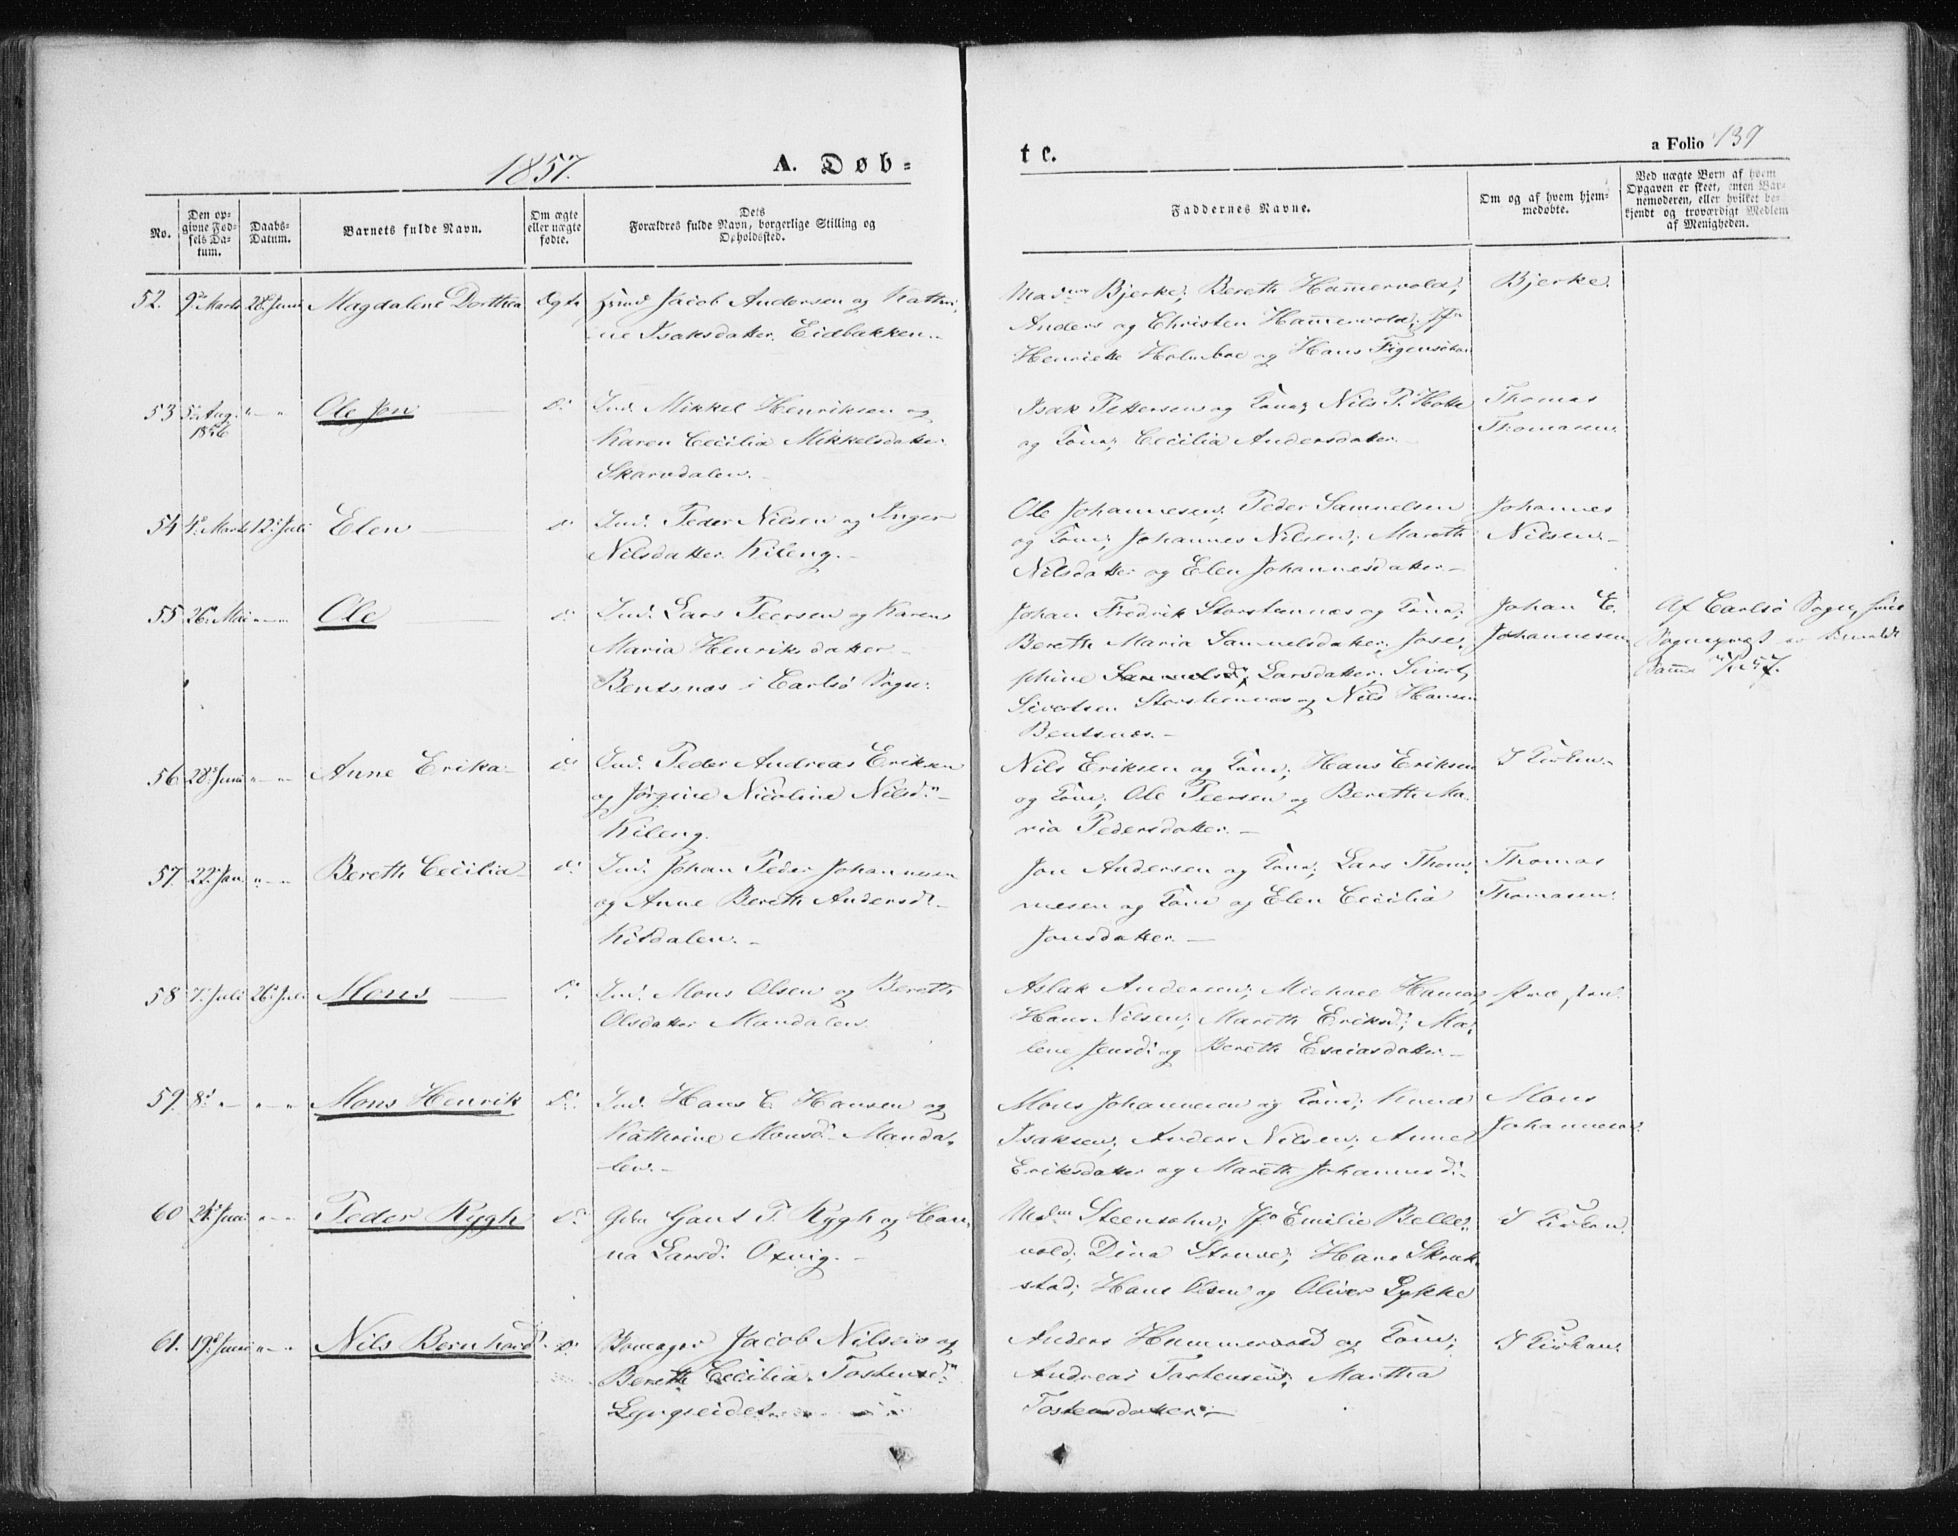 1857.
A. Døb-
te.
a Folio 139
No.
Den op-
givne Fød-
sels Da-
tum.
Daabs-
Datum.
Barnets fulde Navn.
Om ægte
eller uægte
fødte.
Dets
Forældres fulde Navn, borgerlige Stilling og
Opholdssted.
Faddernes Navne.
Om og af hvem hjem-
medøbte.
Ved uægte Børn af hvem
Opgaven er skeet, enten Bar-
nemoderen, eller hvilket be-
kjendt og troværdigt Medlem
af Menigheden.
52. 9de Marts 28de Juni Magdalene Dorthea Ægte Jacob Andersen og Kathri-
ne Isaksdatter. Eidbakken.
Bjerke; Bereth Hammervold;
Anders og Christen Hammervold; Jfr
Henrikke Holmboe og Hans Figenschou
Bjerke.
53 5te Aug. 1856 " — " Ole Jon d: Ind. Mikkel Henriksen og
Karen Cecilia Mikkelsdatter.
Skarvdalen.
Isak Pettersen og Kone; Nils P. Hotte
og Kone; Cecilia Andersdatter.
Thomas
Thomasen.
54 4de Marts 12te Juli Elen d: Ind. Peder Nilsen og Inger
Nilsdatter. Kileng.
Ole Johannesen; Peder Samuelsen
og Kone; Johannes Nilsen; Mareth
Nilsdatter og Elen Johannesdatter.
Johannes
Nilsen.
55 26de Mai " — " Ole d: Ind. Lars Peersen og Karen
Maria Henriksdatter
Bentsnæs i Carlsø Sogn.
Johan Fredrik Storstennæs og Kone;
Bereth Maria Samuelsdatter; Jose-
phine Samuelsd. Larsdatter; Sivert
Sivertsen Storstennæs og Nils Hansen
Bentsnæs.
Johan E.
Johannesen
Af Carlsø Sogn, hvis
Sognepræst er anmeldt
56 28de Juni " — " Anne Erika d: Ind. Peder Andreas Eriksen
og Jørgine Nicoline Nilsd.
Kileng.
Nils Eriksen og Kone; Hans Eriksen
og Kone; Ole Peersen og Bereth Ma-
ria Pedersdatter.
I Kirken.
57. 22de Jan. " — " Bereth Cecilia d: Ind. Johan Peder Johannesen
og Anne Bereth Andersd.
Kitdalen.
Jon Andersen og Kone; Lars Thom-
mesen og Kone og Elen Cecilia
Jonsdatter.
Thomas
Thomasen.
58 7de Juli 26de Juli Mons d: Ind. Mons Olsen og Bereth
Olsdatter Mandalen.
Aslak Andersen; Michael
Hans Nilsen; Mareth Eriksd; Ma-
lene Jensd. og Bereth Esaiasdatter.
59. 8de " — " Mons Henrik d: Ind. Hans C. Hansen og
Kathrine Monsd. Manda-
len.
Mons Johannesen og Kone; Knud
Isaksen; Anders Nilsen; Anne
Eriksdatter og Mareth Johannesd.
Mons
Johannesen.
60 Juni " — " Peder Rygh d: Gbr Gant P. Rygh og Han-
na Larsd. Oxvig.
Steensohn; Jfr Emilie Belle-
vold; Dina Struve; Hans Skruk-
stad; Hans Olsen og Oliver Lykke
I Kirken.
61. 19de Juni " — " Nils Bernhard d: Jacob Nilsen og
Bereth Cecilia Tostensd.
Lyngseidet.
Anders Hammervold og Kone;
Andreas Tostensen; Martha
Tostensdatter.
I Kirken.